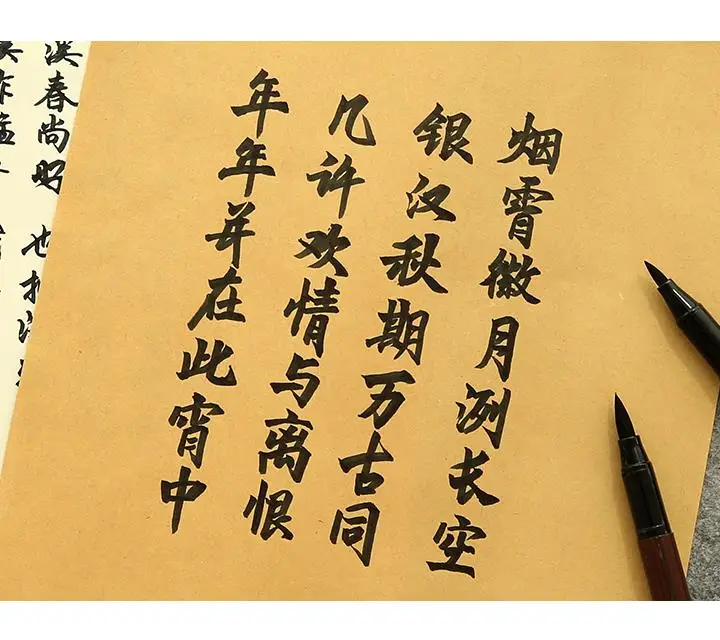 烟霄微月洌长空
银汉秋期万古同
几许欢情与离恨
年年并在此宵中
溪春尚好 也